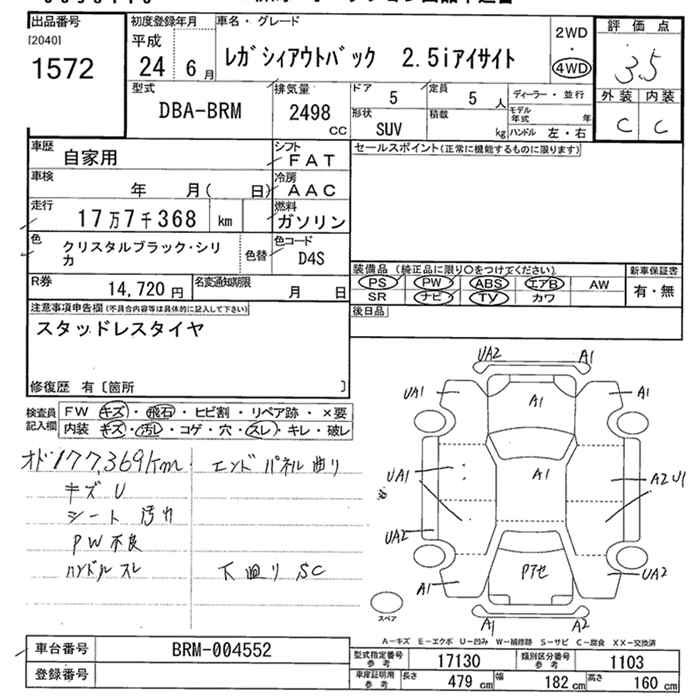 出品番号 初度登録年月 車名・グレード 2WD 評価点
[2040] 平成 ・
1572 24 6月 レガシィアウトバック 2.5iアイサイト 4WD 3.5
型式 排気量 ドア 5 定員 5人 ディーラー・並行 外装 内装
DBA-BRM 2498 CC 形状 SUV 積載 kg モデル年式 年 C C
ハンドル 左・右
車歴 自家用 シフト FAT セールスポイント(正常に機能するものに限ります)
車検 年 月( 日) 冷房 AAC
走行 17万7千368 km 燃料 ガソリン
色 クリスタルブラック・シリカ 色替 色コード D4S
装備品(純正品に限り○をつけてください) 新車保証書
PS PW ABS エアB AW 有・無
SR ナビ TV カワ
R券 14,720円 名変通知期限 月 日
後日品
注意事項申告欄(不具合内容等は具体的に記入して下さい)
スタッドレスタイヤ
修復歴 有〔箇所 〕
検査員記入欄 FW キズ・飛石・ヒビ割・リペア跡・×要
内装 キズ・汚レ・コゲ・穴・スレ・キレ・破レ
オド177,369km エンドパネル曲リ
キズU
シート 汚れ
PW不良
ハンドルスレ 下廻リ SC
UA2 A1
UA1 A1 A1
UA1 A1 A2 U1
UA2
A1 Pアセ UA2
A1 A2
スペア
A-キズ E-エクボ U-凹み W-補修跡 S-サビ C-腐食 XX-交換済
車台番号 BRM-004552
登録番号
型式指定番号 参考 17130 類別区分番号 参考 1103
車庫証明用 参考 長さ 479cm 幅 182cm 高さ 160cm